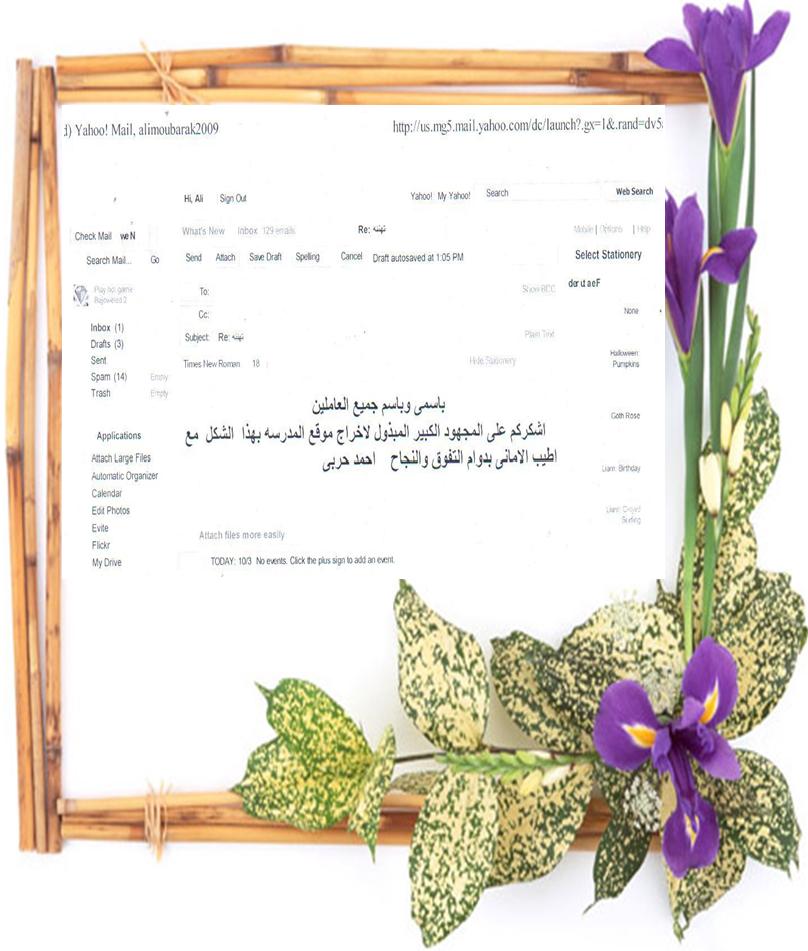 d) Yahoo! Mail, alimoubarak2009 http://us.mg5.mail.yahoo.com/dc/launch?.gx=1&.rand=dv5
Hi, Ali Sign Out Yahoo! My Yahoo! Search Web Search
Check Mail weN What's New Inbox 129 emails Re: تهنئه Mobile | Options | Help
Search Mail... Go Send Attach Save Draft Spelling Cancel Draft autosaved at 1:05 PM Select Stationery
Play hot game
Bejeweled 2
To: Show BCC
None
Cc:
Inbox (1)
Drafts (3) Subject: Re: تهنئه Plain Text
Sent Times New Roman 18 Hide Stationery Halloween: Pumpkins
Spam (14) Empty
Trash Empty
باسمى وباسم جميع العاملين
Goth Rose
اشكركم على المجهود الكبير المبذول لاخراج موقع المدرسه بهذا الشكل مع
اطيب الامانى بدوام التفوق والنجاح احمد حربى
Applications
Attach Large Files
Liam: Birthday
Automatic Organizer
Calendar
Edit Photos
Liam:
Surfing
Evite
Attach files more easily
Flickr
My Drive TODAY: 10/3 No events. Click the plus sign to add an event.